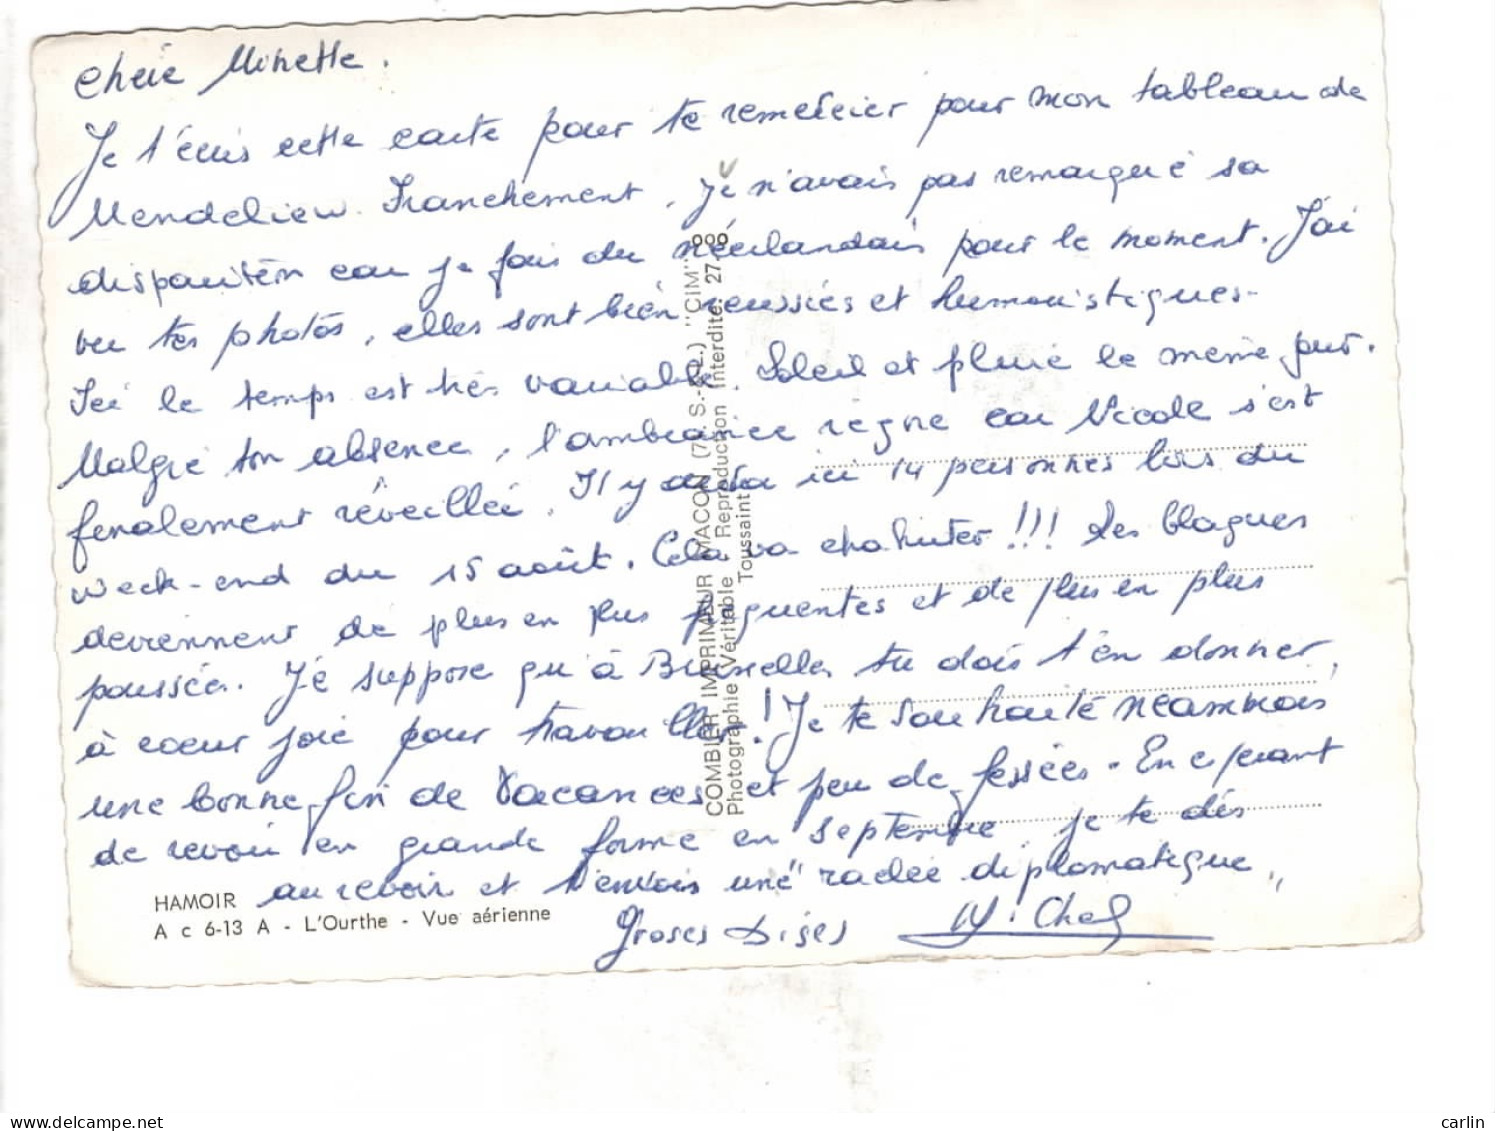 Chère Minette.
Je t'écris cette carte pour te remercier pour mon tableau de
Mendeliew. Franchement, je n'avais pas remarqué sa
disparition car je fais du néerlandais pour le moment. J'ai
vu tes photos, elles sont bien reussies et humouristiques.
Ici le temps est très variable. Soleil et pluie le meme jour.
Malgré ton absence, l'ambiance regne car Nicole s'est
finalement réveillée. Il y aura ici 14 personnes lors du
week-end du 15 août. Cela va chahuter !!! Les blagues
deviennent de plus en plus fréquentes et de plus en plus
poussées. Je suppose qu'à Bruxelles tu dois t'en donner
à coeur joie pour travailler! Je te souhaite néammoins
une bonne fin de vacances et peu de fessées. En esperant
de revoir en grande forme en septembre je te dis
au revoir et t'envois une "raclée diplomatique"
Groses Bises Michel
HAMOIR
A c 6-13 A - L'Ourthe - Vue aérienne
COMBIER IMPRIMEUR MACON (71. S.-&-L.) "CIM"
Photographie Véritable - Reproduction Interdite. 27-
000
Toussaint
carlin